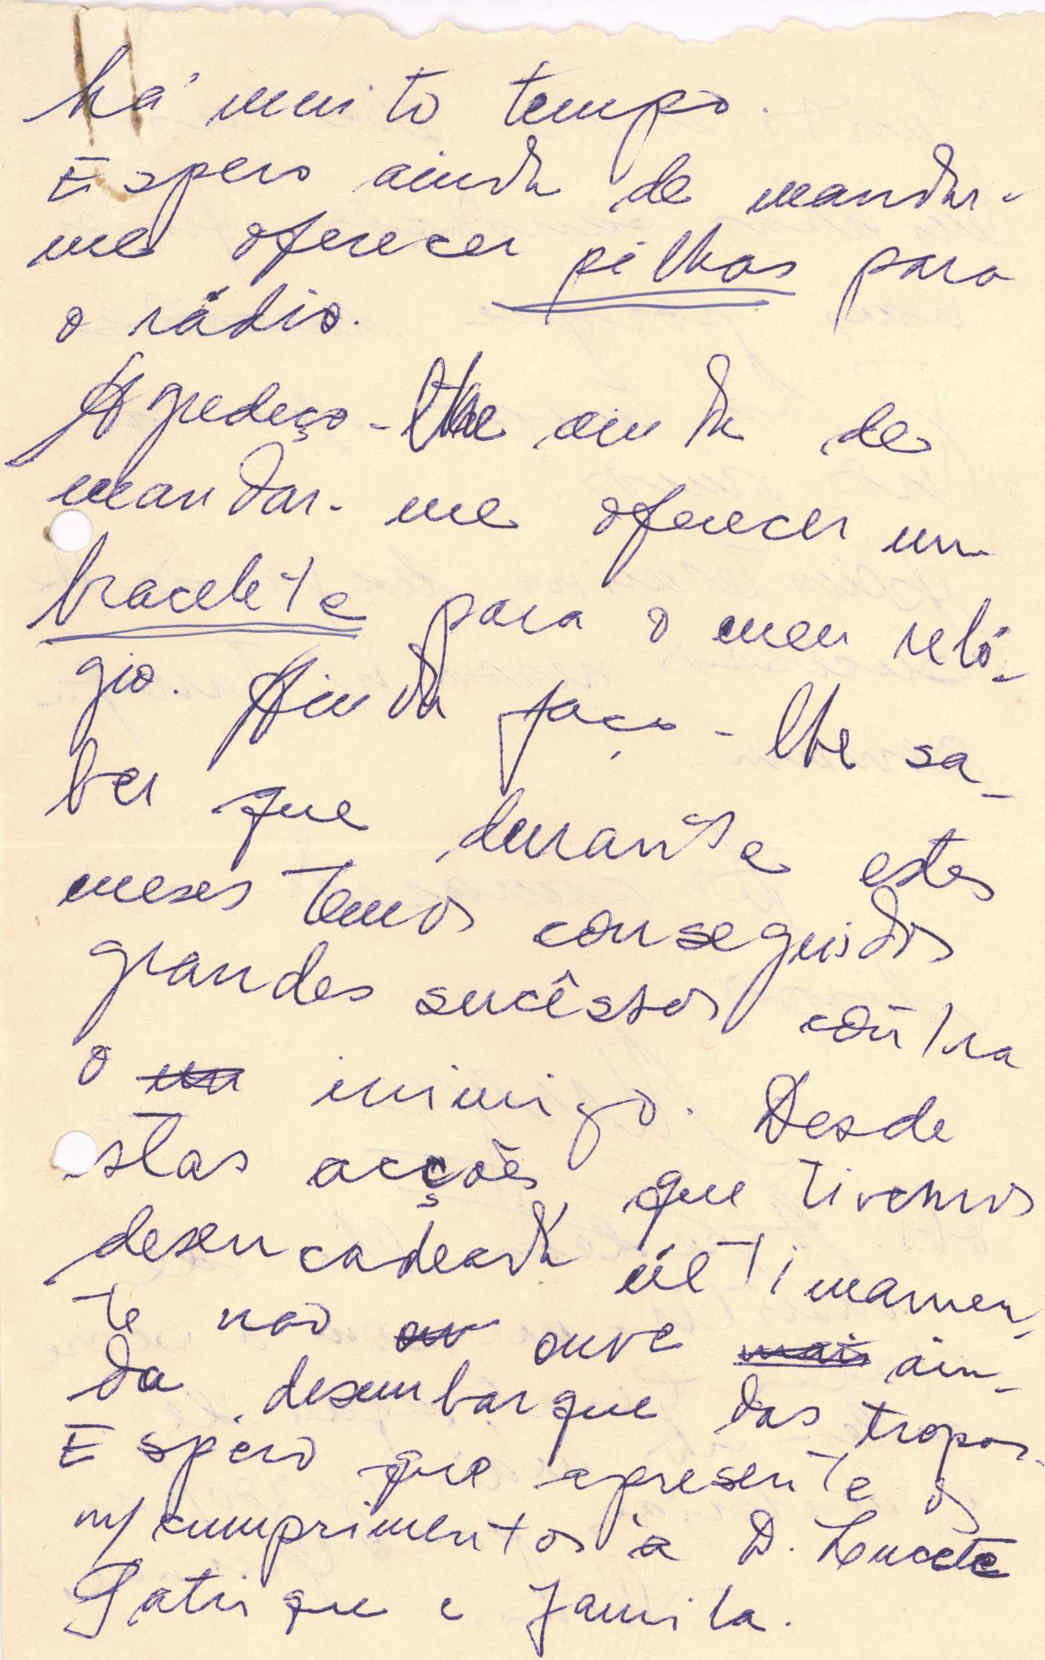 há muito tempo.
Espero ainda de mandar-
me oferecer pilhas para
o rádio.
Agredeço-lhe ainda de
mandar-me oferecer um
bracelete para o meu reló-
gio. Ainda faço-lhe sa-
ber que durante estes
meses temos conseguidos
grandes sucêssos contra
o inimigo. Desde
stas acções que tivemos
desencadeada últimamen-
te não ouve ain-
da desembarque das tropas.
Espero que apresente os
m/ cumprimentos à D. Lucete
Patrique e Jamila.